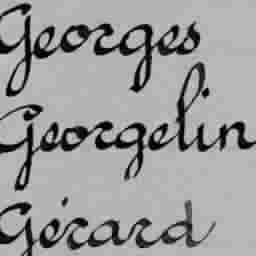 Georges
Georgelin
Gérard